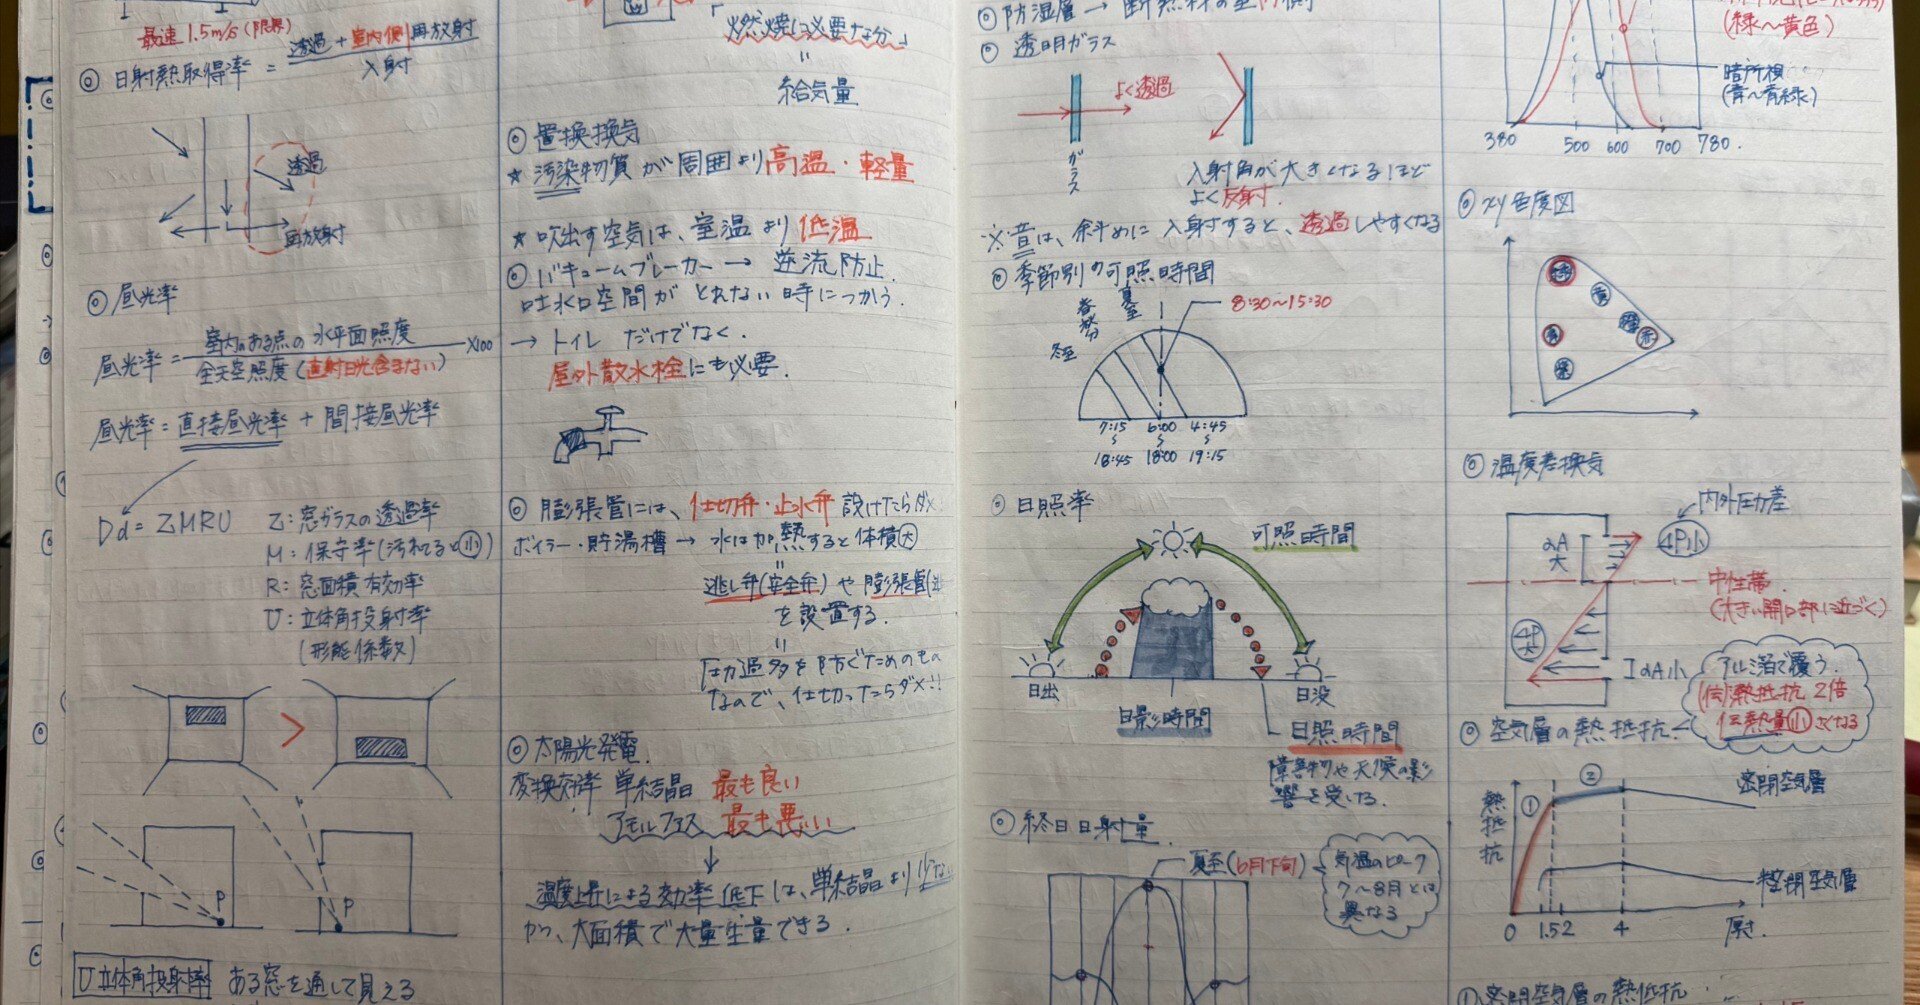 最速 1.5m/s (限界)
◎ 日射熱取得率 = 透過 + 室内側再放射
入射
透過
再放射
◎ 昼光率
昼光率 = 室内のある点の水平面照度 ×100
全天空照度 (直射日光含まない)
昼光率 = 直接昼光率 + 間接昼光率
Dd = ZMRU
Z: 窓ガラスの透過率
M: 保守率 (汚れてると小)
R: 窓面積有効率
U: 立体角投射率
(形態係数)
>
P
P
U 立体角投射率 ある窓を通して見える
燃焼に必要な分」
"
給気量
◎ 置換換気
★ 汚染物質が周囲より高温・軽量
★ 吹出す空気は、室温より低温
◎ バキュームブレーカー → 逆流防止.
吐水口空間がとれない時につかう.
→ トイレ だけでなく.
屋外散水栓にも必要.
◎ 膨張管には、仕切弁・止水弁 設けたらダメ
ボイラー・貯湯槽 → 水は加熱すると体積大
逃し弁(安全弁)や膨張管
を設置する.
"
圧力過多を防ぐためのもの
なので、仕切ったらダメ!!
◎ 太陽光発電.
変換効率 単結晶 最も良い
アモルファス 最も悪い
↓
温度上昇による効率低下は、単結晶より少ない
かつ、大面積で大量生産できる.
◎ 防湿層 → 断熱材の室内側
◎ 透明ガラス
よく透過
ガラス
入射角が大きくなるほど
よく反射.
※ 音は、斜めに入射すると、透過しやすくなる
◎ 季節別の可照時間
夏至
春秋分
冬至
8:30~15:30
7:15 6:00 4:45
18:45 18:00 19:15
◎ 日照率
可照時間
日出
日没
日影時間
日照時間
障害物や天候の影
響を受ける.
◎ 終日日射量
夏至(6月下旬)
気温のピーク
7~8月とは
異なる
(緑~黄色)
暗所視
(青~青緑)
380 500 600 700 780.
◎ xy色度図
緑
黄
橙
赤
青
◎ 温度差換気
内外圧力差
αA
大
ΔP小
中性帯
(大きい開口部に近づく)
ΔP
大
αA小
アルミ箔で覆う.
熱抵抗 2倍
伝熱量小さくなる
◎ 空気層の熱抵抗.
熱抵抗
①
②
密閉空気層
半密閉空気層
0 1.5 2 4 厚さ.
① 密閉空気層の熱抵抗